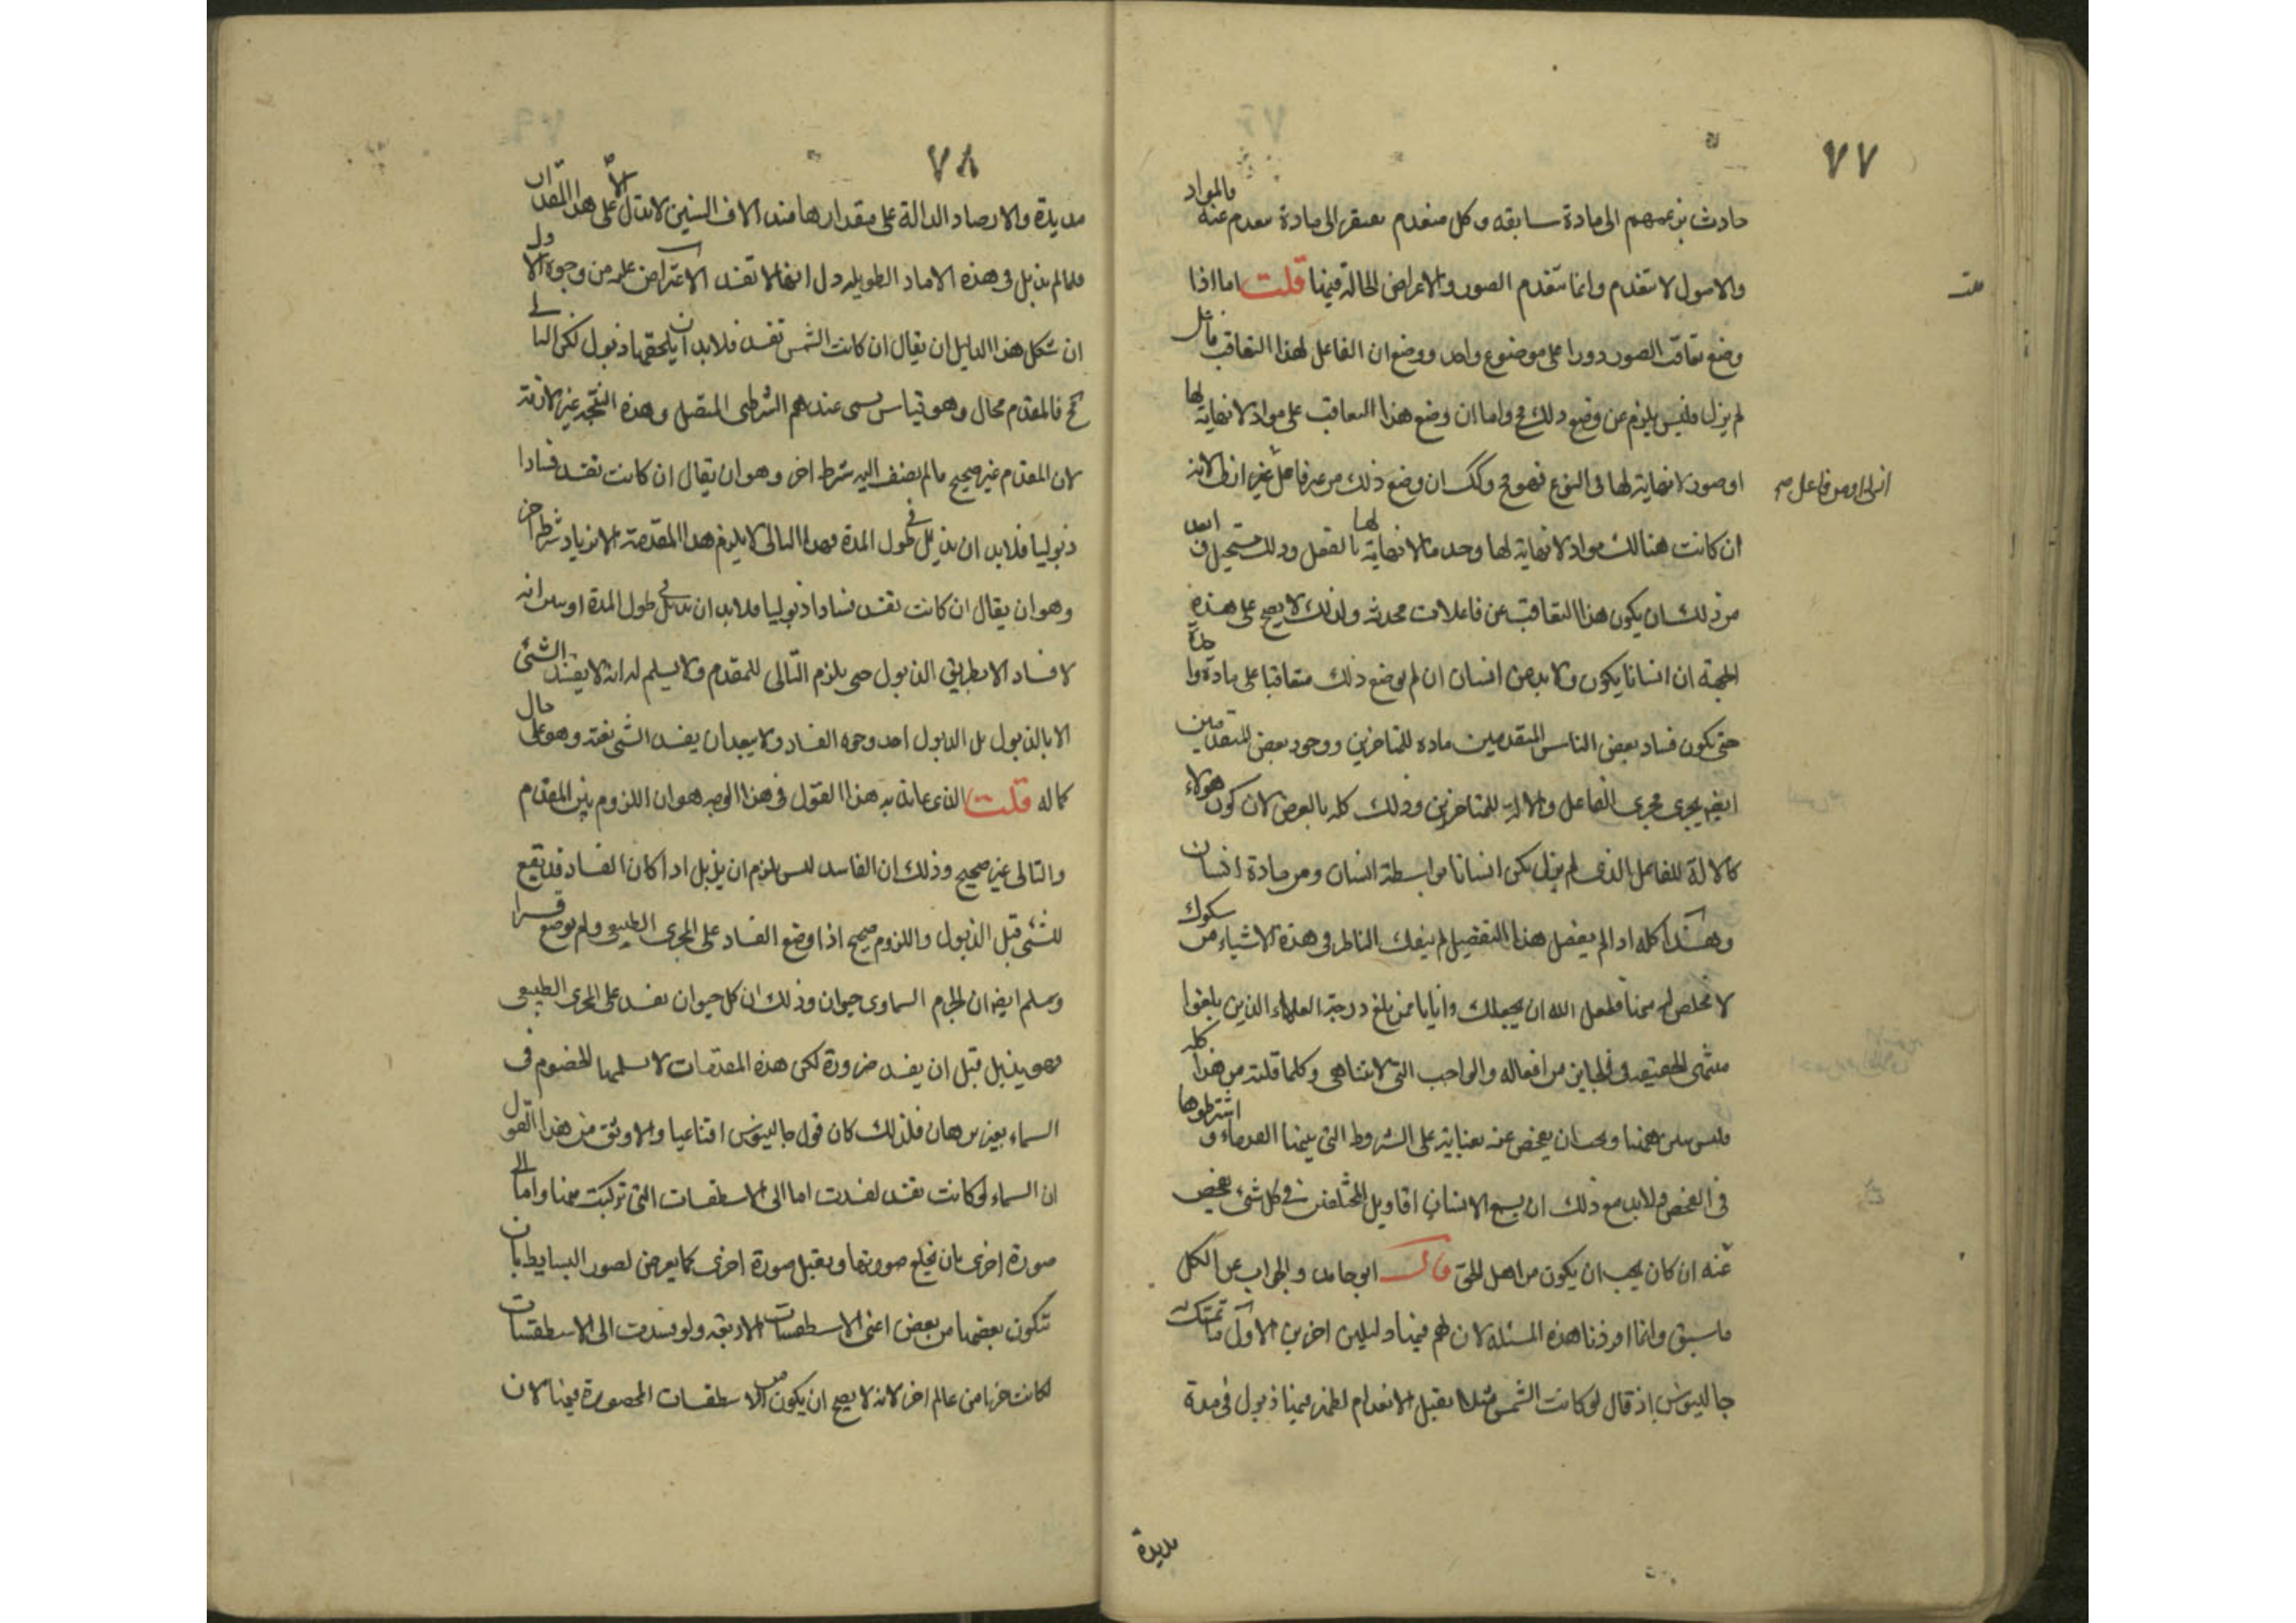 ٧٧
حادث بزعمهم الى مادة سابقه وكل منعدم مفتقر الى مادة ينعدم عنه فالمواد
والاصول لا تنعدم وانما تنعدم الصور والاعراض الحالة فيها قلت اما اذا
وضع تعاقب الصور دورا على موضوع واحد ووضع ان الفاعل لهذا التعاقب فاعل
لم يزل فليس يلزم عن وضع ذلك مح واما ان وضع هذا التعاقب على مواد لا نهاية لها
او صور لا نهاية لها فى النوع فهو مح وكك ان وضع ذلك من غير فاعل غير ازلى لانه
ان كانت هنالك مواد لا نهاية لها وجد ما لا نهاية لها بالفعل وذلك مستحيل وابعد
من ذلك ان يكون هذا التعاقب عن فاعلات محدثه ولذلك لا يصح على هذه
الجهة ان انسانا يكون ولا بد من انسان ان لم يوضع ذلك متعاقبا على مادة واحدة
حتى يكون فساد بعض الناس المتقدمين مادة للمتاخرين ووجود بعض المتقدمين
ايضا يجرى مجرى الفاعل والالة للمتاخرين وذلك كله بالعرض لان كون هولاء
كالالة للفاعل الذى لم يزل يكون انسانا بواسطة انسان ومن مادة انسان
وهذا كله اذا لم يفصل هذا التفصيل لم ينفك الناظر فى هذه الاشياء من شكوك
لا مخلص له منها فلعل الله ان يجعلك وايانا ممن بلغ درجة العلماء الذين بلغوا
منتهى الحقيقة فى الجايز من افعاله والواجب التى لا تتناهى وكلما قلته من هذا كله
فليس يبين ههنا ويجب ان يفحص عنه بعناية على الشروط التى بينها القدماء واشترطوها
فى الفحص ولا بد مع ذلك ان يسمع الانسان اقاويل المختلفين فى كل شىء يفحص
عنه ان كان يحب ان يكون من اهل الحق قال ابو حامد والجواب عن الكل
ما سبق وانما اوردنا هذه المسئلة لان لهم فيها دليلين اخرين الاول ما تمسك به
جالينوس اذ قال لو كانت الشمس مثلا تقبل الانعدام لظهر فيها ذبول فى مدة
مديدة
٧٨
مديدة والارصاد الدالة على مقدارها منذ الاف السنين لا تدل الا على هذا المقدار
فلما لم يذبل فى هذه الاماد الطويله دل انها لا تفسد الاعتراض عليه من وجوه الاول
ان شكل هذا الدليل ان يقال ان كانت الشمس تفسد فلا بد ان يلحقها ذبول لكن التالى
مح فالمقدم محال وهو قياس يسمى عندهم الشرطى المتصل وهذه النتيجه غير لازمة
لان المقدم غير صحيح ما لم يضف اليه شرط اخر وهو ان يقال ان كانت تفسد فسادا
ذبوليا فلا بد ان يذبل فى طول المدة وهذا التالى لا يلزم هذا المقدمة الا بزيادة شرط اخر
وهو ان يقال ان كانت تفسد فسادا ذبوليا فلا بد ان تذبل فى طول المدة او يبين انه
لا فساد الا بطريق الذبول حتى يلزم التالى للمقدم ولا يسلم له انه لا يفسد الشئ
الا بالذبول بل الذبول احد وجوه الفساد ولا يبعد ان يفسد الشئ بغتة وهو على حال
كماله قلت الذى عاند به هذا القول فى هذا الوجه هو ان اللزوم بين المقدم
والتالى غير صحيح وذلك ان الفاسد ليس يلزم ان يذبل اذا كان الفساد قد يقع
للشئ قبل الذبول واللزوم صحيح اذا وضع الفساد على المجرى الطبيعى ولم يوضع قسرا
وسلم ايضا ان الجرم السماوى حيوان وذلك ان كل حيوان يفسد على المجرى الطبيعى
فهو يذبل قبل ان يفسد ضرورة لكن هذه المقدمات لا يسلمها الخصوم فى
السماء بغير برهان فلذلك كان قول جالينوس اقناعيا والاوثق من هذا القول
ان السماء لو كانت تفسد لفسدت اما الى الاسطقسات التى تركبت منها واما الى
صورة اخرى بان تخلع صورتها وتقبل صورة اخرى كما يعرض لصور البسايط بان
تتكون بعضها من بعض اعنى الاسطقسات الاربعه ولو فسدت الى الاسطقسات
لكانت جزءا من عالم اخر لانه لا يصح ان يكون من الاسطقسات المحصورة فيها لان